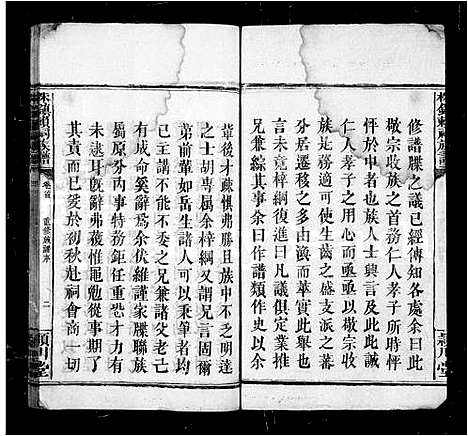 修譜牒之議已經傳知各處余曰此
敬宗收族之首務仁人孝子時所關
忤於中者也族人士興言及此此誠
仁人孝子之用心而亟亟以敬宗收
族為務適可使生齒之盛支派之蕃
分遷移居之由釐而華實此此舉矣
言未竟梓綱復進曰凡議俱定業推
兄兼綜其事余曰作譜類作史以余
輩後才疎懼弗勝且族中不乏明達
之士胡專屬余梓綱又謂兄言固爾
弟前輩如岳生諸人可以秉筆者均
有成命奚辭為余伏維謹家牒聯族
誼固不可委之兄兼諸父老已
屬原分內事特務鉅任重恐才力有
未逮耳既辭弗獲惟黽勉從事期了
其責而已爰於初秋赴祠會商一切
卷首
重修族譜序
二
潁川堂